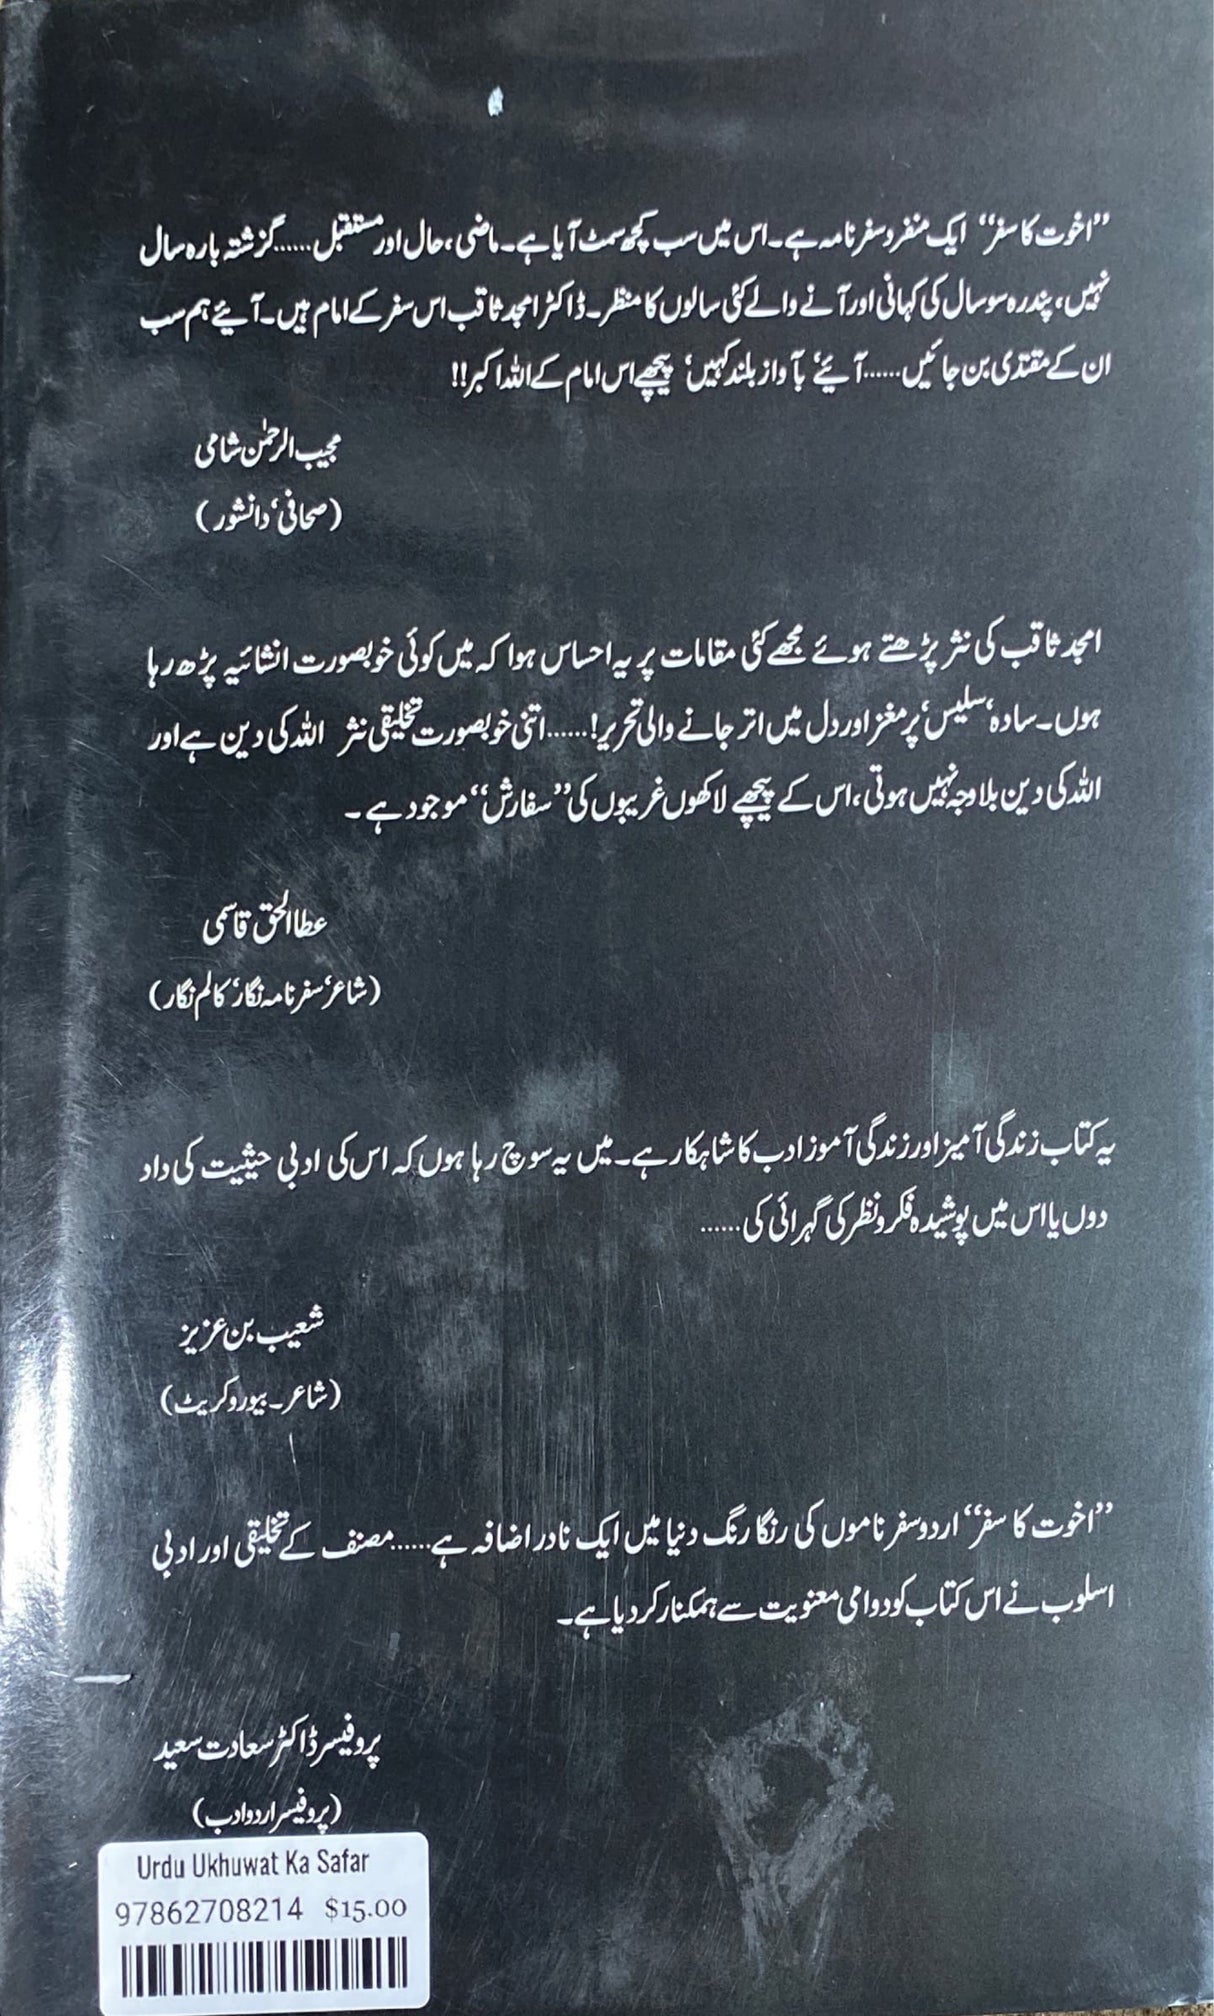 ”اخوت کا سفر“ ایک منفرد سفرنامہ ہے۔ اس میں سب کچھ سمٹ آیا ہے۔ ماضی، حال اور مستقبل......گزشتہ بارہ سال
نہیں، پندرہ سو سال کی کہانی اور آنے والے کئی سالوں کا منظر۔ ڈاکٹر امجد ثاقب اس سفر کے امام ہیں۔ آیئے ہم سب
ان کے مقتدی بن جائیں......آیئے‘ بآواز بلند کہیں‘ پیچھے اس امام کے اللہ اکبر!!
مجیب الرحمٰن شامی
(صحافی‘ دانشور)
امجد ثاقب کی نثر پڑھتے ہوئے مجھے کئی مقامات پر یہ احساس ہوا کہ میں کوئی خوبصورت انشائیہ پڑھ رہا
ہوں۔ سادہ‘ سلیس‘ پرمغز اور دل میں اتر جانے والی تحریر!......اتنی خوبصورت تخلیقی نثر اللہ کی دین ہے اور
اللہ کی دین بلاوجہ نہیں ہوتی، اس کے پیچھے لاکھوں غریبوں کی ”سفارش“ موجود ہے۔
عطا الحق قاسمی
(شاعر‘ سفرنامہ نگار‘ کالم نگار)
یہ کتاب زندگی آمیز اور زندگی آموز ادب کا شاہکار ہے۔ میں یہ سوچ رہا ہوں کہ اس کی ادبی حیثیت کی داد
دوں یا اس میں پوشیدہ فکر و نظر کی گہرائی کی......
شعیب بن عزیز
(شاعر۔ بیوروکریٹ)
”اخوت کا سفر“ اردو سفرناموں کی رنگا رنگ دنیا میں ایک نادر اضافہ ہے......مصنف کے تخلیقی اور ادبی
اسلوب نے اس کتاب کو دوامی معنویت سے ہمکنار کر دیا ہے۔
پروفیسر ڈاکٹر سعادت سعید
(پروفیسر اردو ادب)
Urdu Ukhuwat Ka Safar
97862708214 $15.00